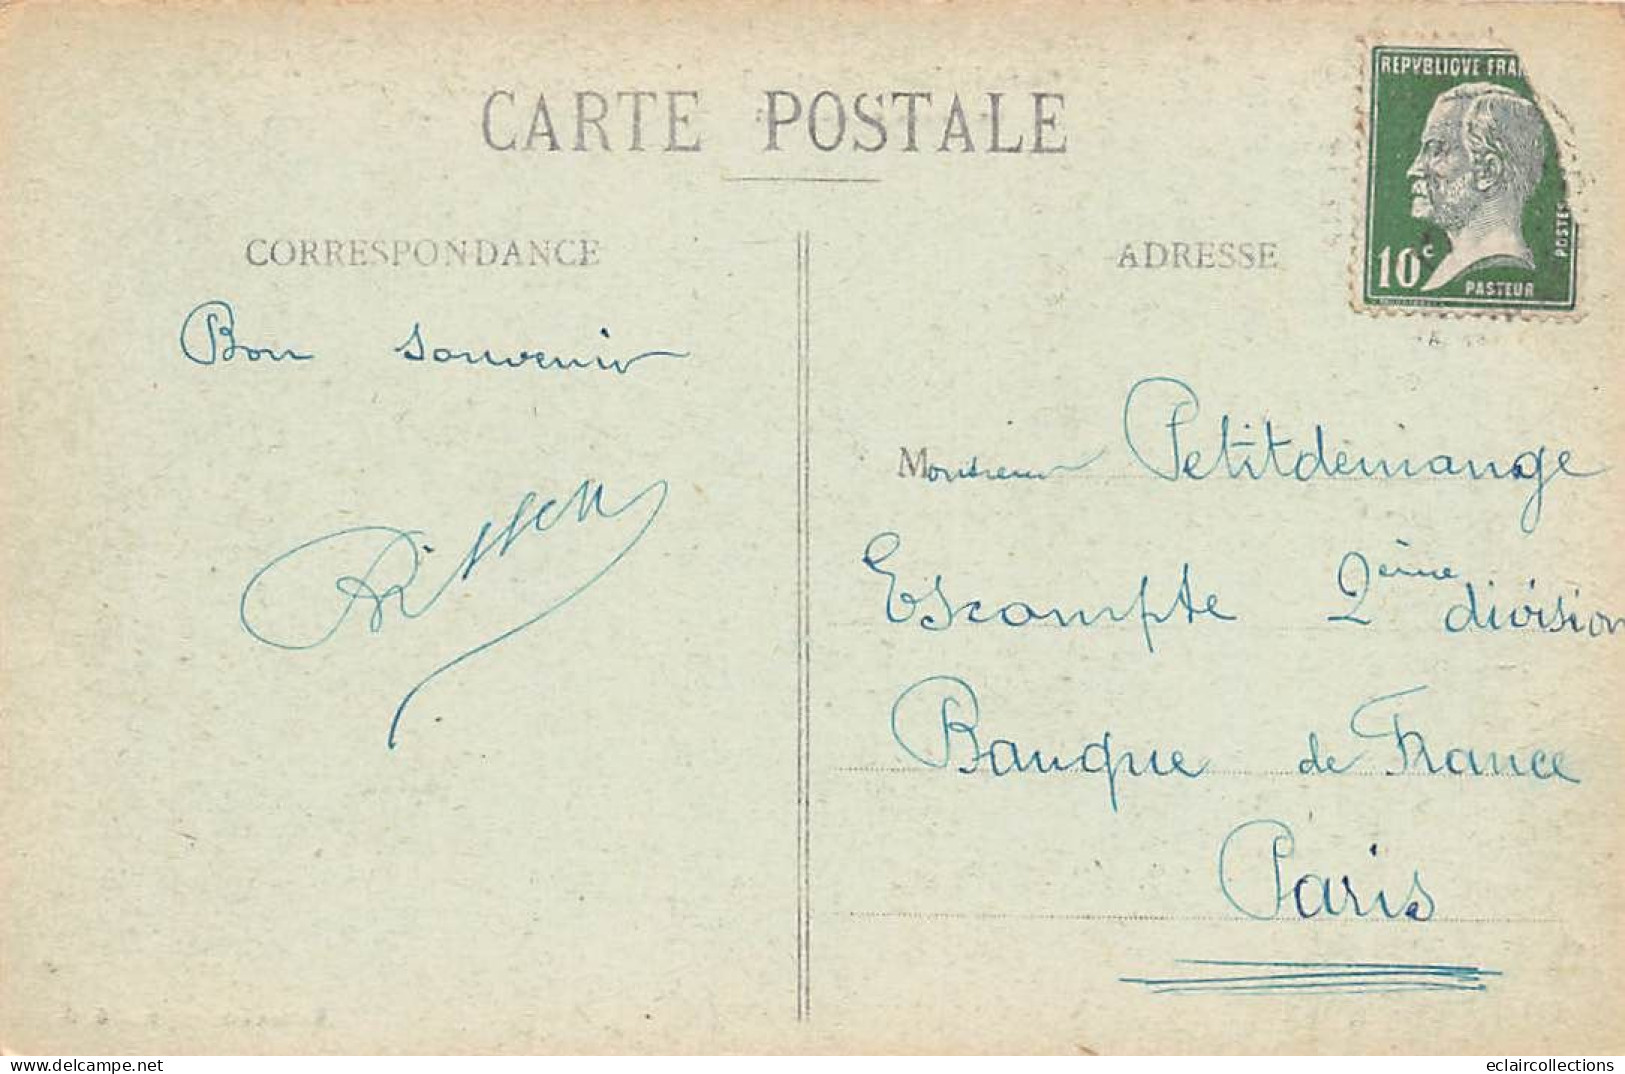 CARTE POSTALE
CORRESPONDANCE
ADRESSE
REPVBLIQVE FRA
POSTE
10c
PASTEUR
Bon souvenir
Monsieur Petitdemange
Escompte 2ème division
Banque de France
Paris
Delcampe.net
eclaircollections